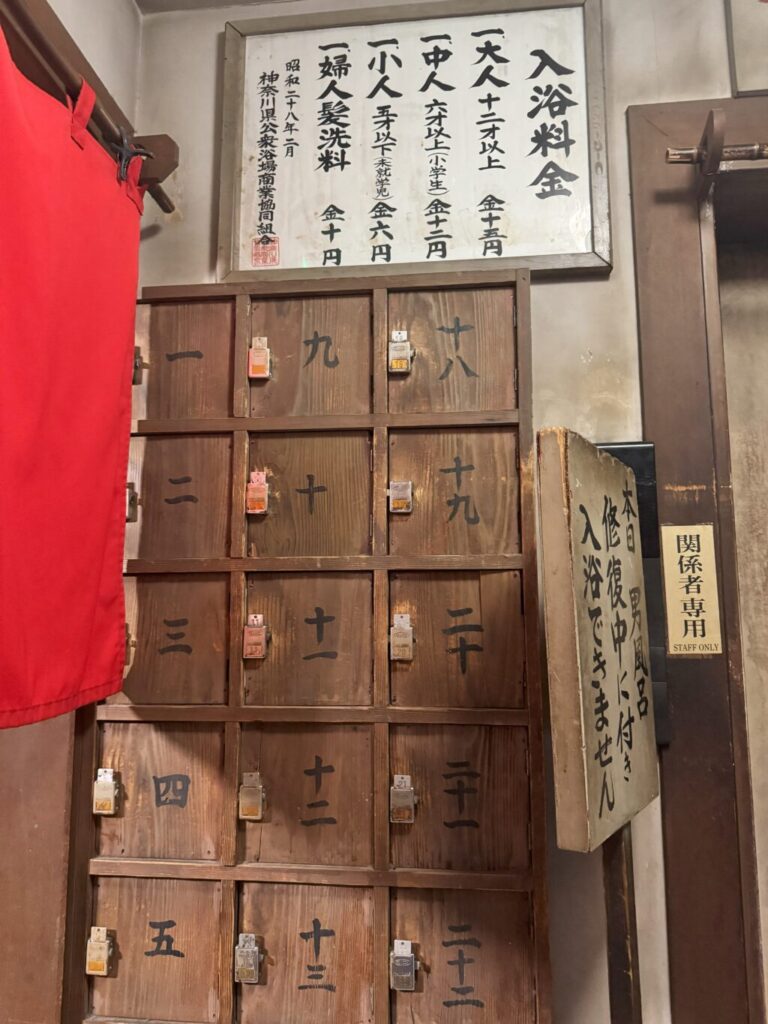 入浴料金
一、大人 十二才以上 金十五円
一、中人 六才以上(小学生) 金十二円
一、小人 五才以下(未就学児) 金六円
一、婦人髪洗料 金十円
昭和二十八年二月
神奈川県公衆浴場商業協同組合
一
九
十八
二
十
十九
三
十一
二十
四
十二
二十一
五
十三
二十二
本日 男風呂
修復中に付き
入浴できません
関係者専用
STAFF ONLY